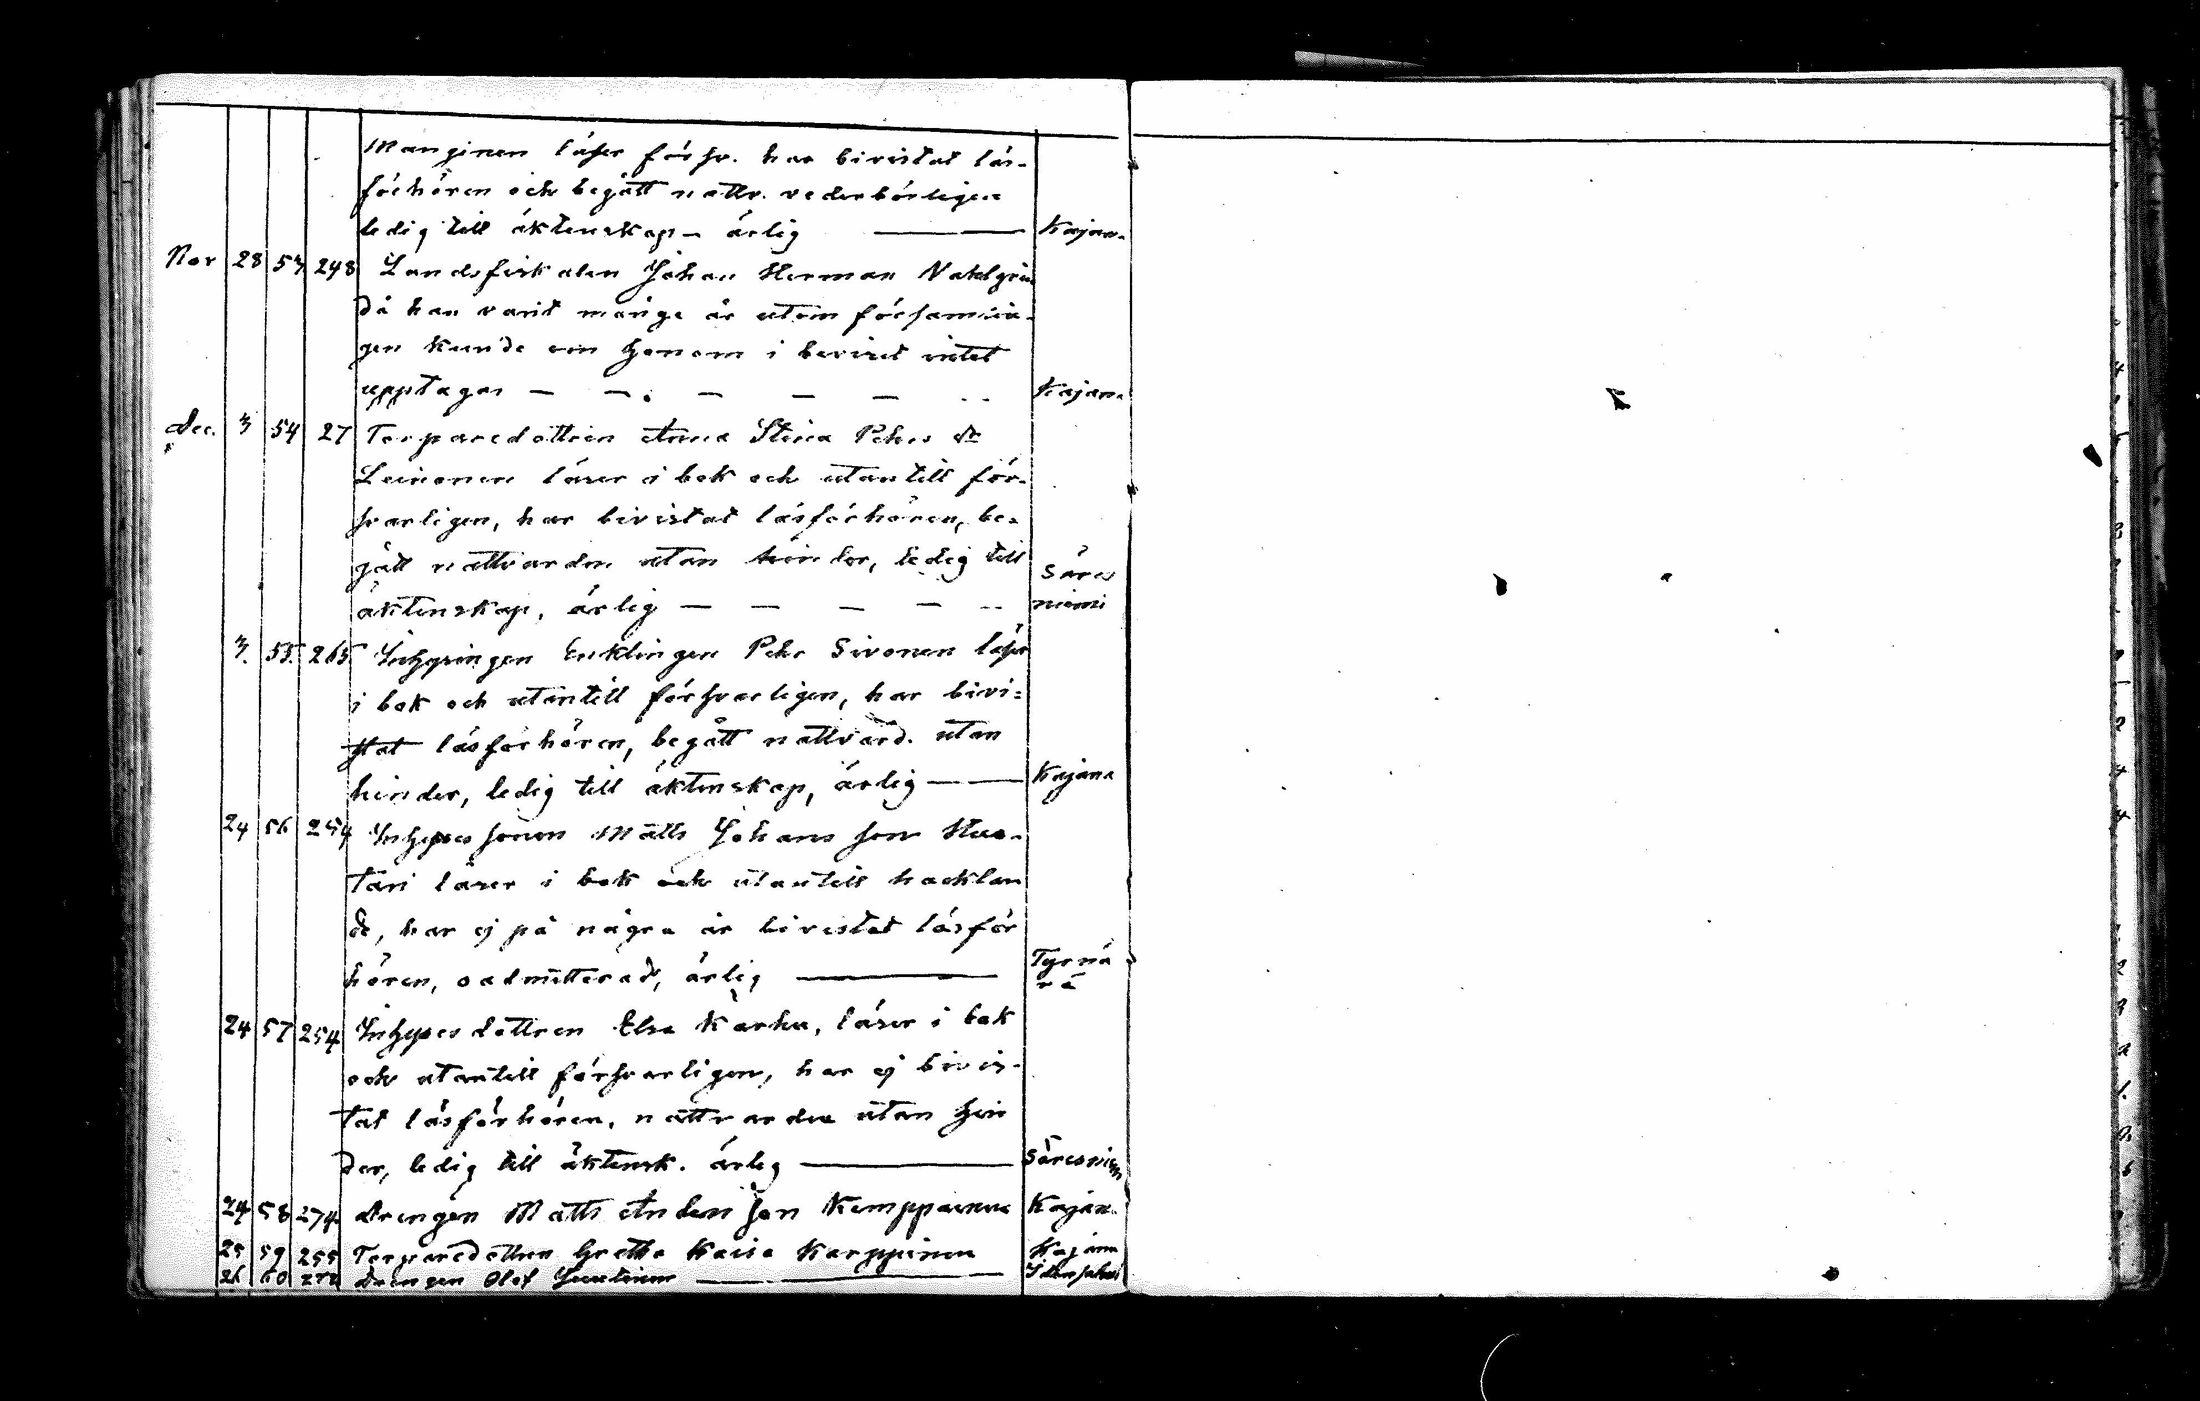 Manginen läser försv. har bivistat läs-
förhören och begått nattv. vederbörligen
ledig till äktenskap - ärlig — Kajan.
Nov 28 53 248 Landsfiskalen Johan Herman
då han varit många år utom församlin-
gen kunde om honom i beviset intet
upptagas — — — — — Kajana
Dec. 3 54 27 Torparedottren Anna Stina Pehrs dr
Leinonen läser i bok och utantill för-
svarligen, har bivistat läsförhören, be-
gått nattvarden utan hinder, ledig till Säres
äktenskap, ärlig — — — — niemi
3. 55. 265 Inhysingen Enklingen Pehr Sivonen läser
i bok och utantill försvarligen, har bivi-
stat läsförhören, begått nattvard. utan
hinder, ledig till äktenskap, ärlig — Kajana
24 56 254 Inhyses sonen Matts Johans son Huo-
tari läser i bok och utantill hacklan
de, har ej på några år bivistat läsför
hören, oadmitterad, ärlig — Tyrnä
vä
24 57 254 Inhyses dottren Elsa Karhu, läser i bok
och utantill försvarligen, har ej bivis-
tat läsförhören, nattvarden utan hin
der, ledig till äktensk. ärlig — Säresniem
24 58 274 Drengen Matts Anders son Kemppainen Kajan.
25 59 255 Torparedottren Gretha Kaisa Karppinen Kajana
26 60 Drengen Olof —